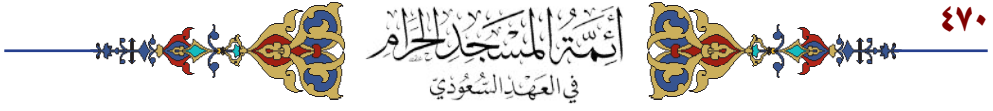 ٤٧٠
أَئِمَّةُ المَسْجِدِ الحَرَامِ
في العَهْدِ السُّعُودِيّ